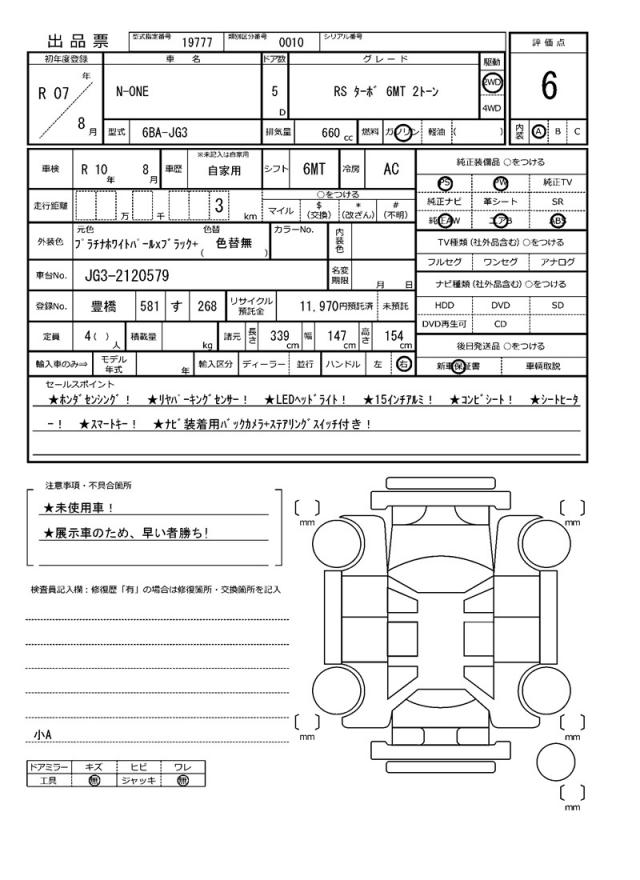 出品票 型式指定番号 19777 類別区分番号 0010 シリアル番号
評価点
6
内装 A B C
初年度登録 車名 ドア数 グレード 駆動
R 07 年 8 月
N-ONE
5 D
RS ターボ 6MT 2トーン
2WD
4WD
型式 6BA-JG3 排気量 660 cc 燃料 ガソリン 軽油 ( )
車検 R 10 年 8 月 車歴 ※未記入は自家用 自家用 シフト 6MT 冷房 AC
走行距離 万 千 3 km
○をつける
マイル $ (交換) * (改ざん) # (不明)
外装色 元色 色替
プラチナホワイトパールxブラック+ ( 色替無 )
カラーNo. 内装色
車台No. JG3-2120579 名変期限 月 日
登録No. 豊橋 581 す 268 リサイクル預託金 11,970円預託済 未預託
定員 4( ) 人 積載量 kg 諸元 長さ 339 cm 幅 147 cm 高さ 154 cm
輸入車のみ⇒ モデル年式 年 輸入区分 ディーラー 並行 ハンドル 左 右
純正装備品 ○をつける
PS PW 純正TV
純正ナビ 革シート SR
純正AW エアB ABS
TV種類 (社外品含む) ○をつける
フルセグ ワンセグ アナログ
ナビ種類 (社外品含む) ○をつける
HDD DVD SD
DVD再生可 CD
後日発送品 ○をつける
新車保証書 車輌取説
セールスポイント
★ホンダセンシング! ★リヤパーキングセンサー! ★LEDヘッドライト! ★15インチアルミ! ★コンビシート! ★シートヒータ
ー! ★スマートキー! ★ナビ装着用バックカメラ+ステアリングスイッチ付き!
注意事項・不具合箇所
★未使用車!
★展示車のため、早い者勝ち!
検査員記入欄:修復歴「有」の場合は修復箇所・交換箇所を記入
小A
ドアミラー キズ ヒビ ワレ
工具 無 ジャッキ 無
〔 〕 mm
〔 〕 mm
〔 〕 mm
〔 〕 mm
〔 〕 mm